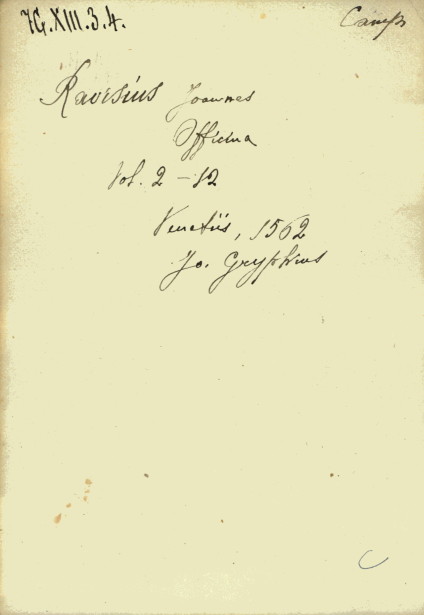 7G.XIII.3.4.
Camp
Ravisius Joannes
Officina
Vol. 2 - 12
Venetiis, 1562
Jo. Gryphius
C